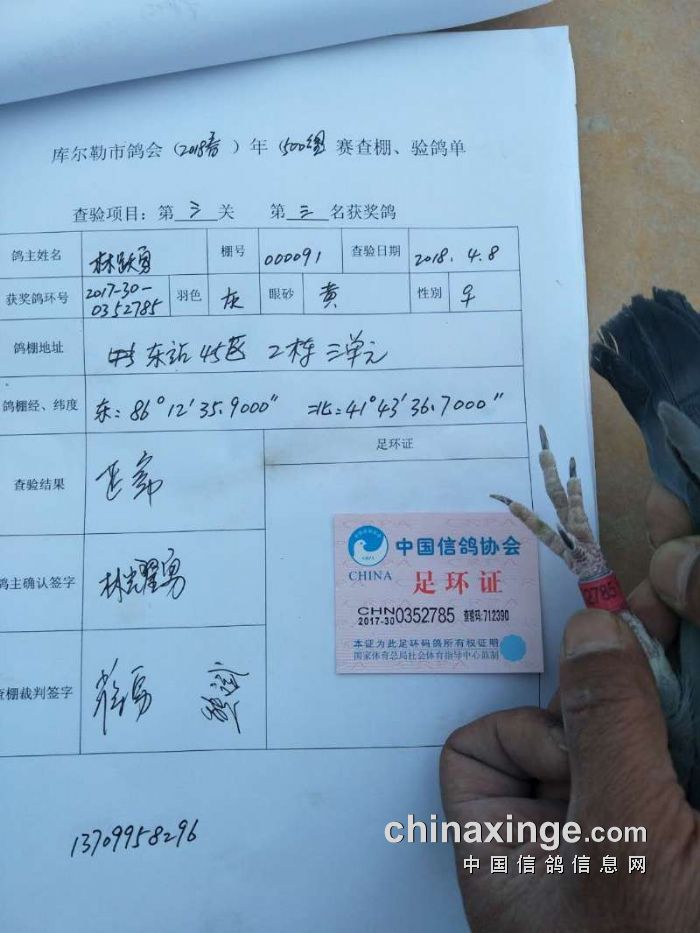 库尔勒市鸽会（2018春）年 500组 赛查棚、验鸽单
查验项目：第 三 关 第 三 名获奖鸽
鸽主姓名 林跃勇 棚号 000091 查验日期 2018.4.8
获奖鸽环号 2017-30-0352785 羽色 灰 眼砂 黄 性别 ♀
鸽棚地址 东站45区 2栋 三单元
鸽棚经、纬度 东:86°12'35.9000" 北:41°43'36.7000"
足环证
查验结果 正常
鸽主确认签字 林耀勇
查棚裁判签字
中国信鸽协会
CHINA 足环证
CHN 2017-30 0352785 查验码:712390
本证为此足环码鸽所有权证明
国家体育总局社会体育指导中心监制
2785
13709958296
chinaxinge.com
中国信鸽信息网